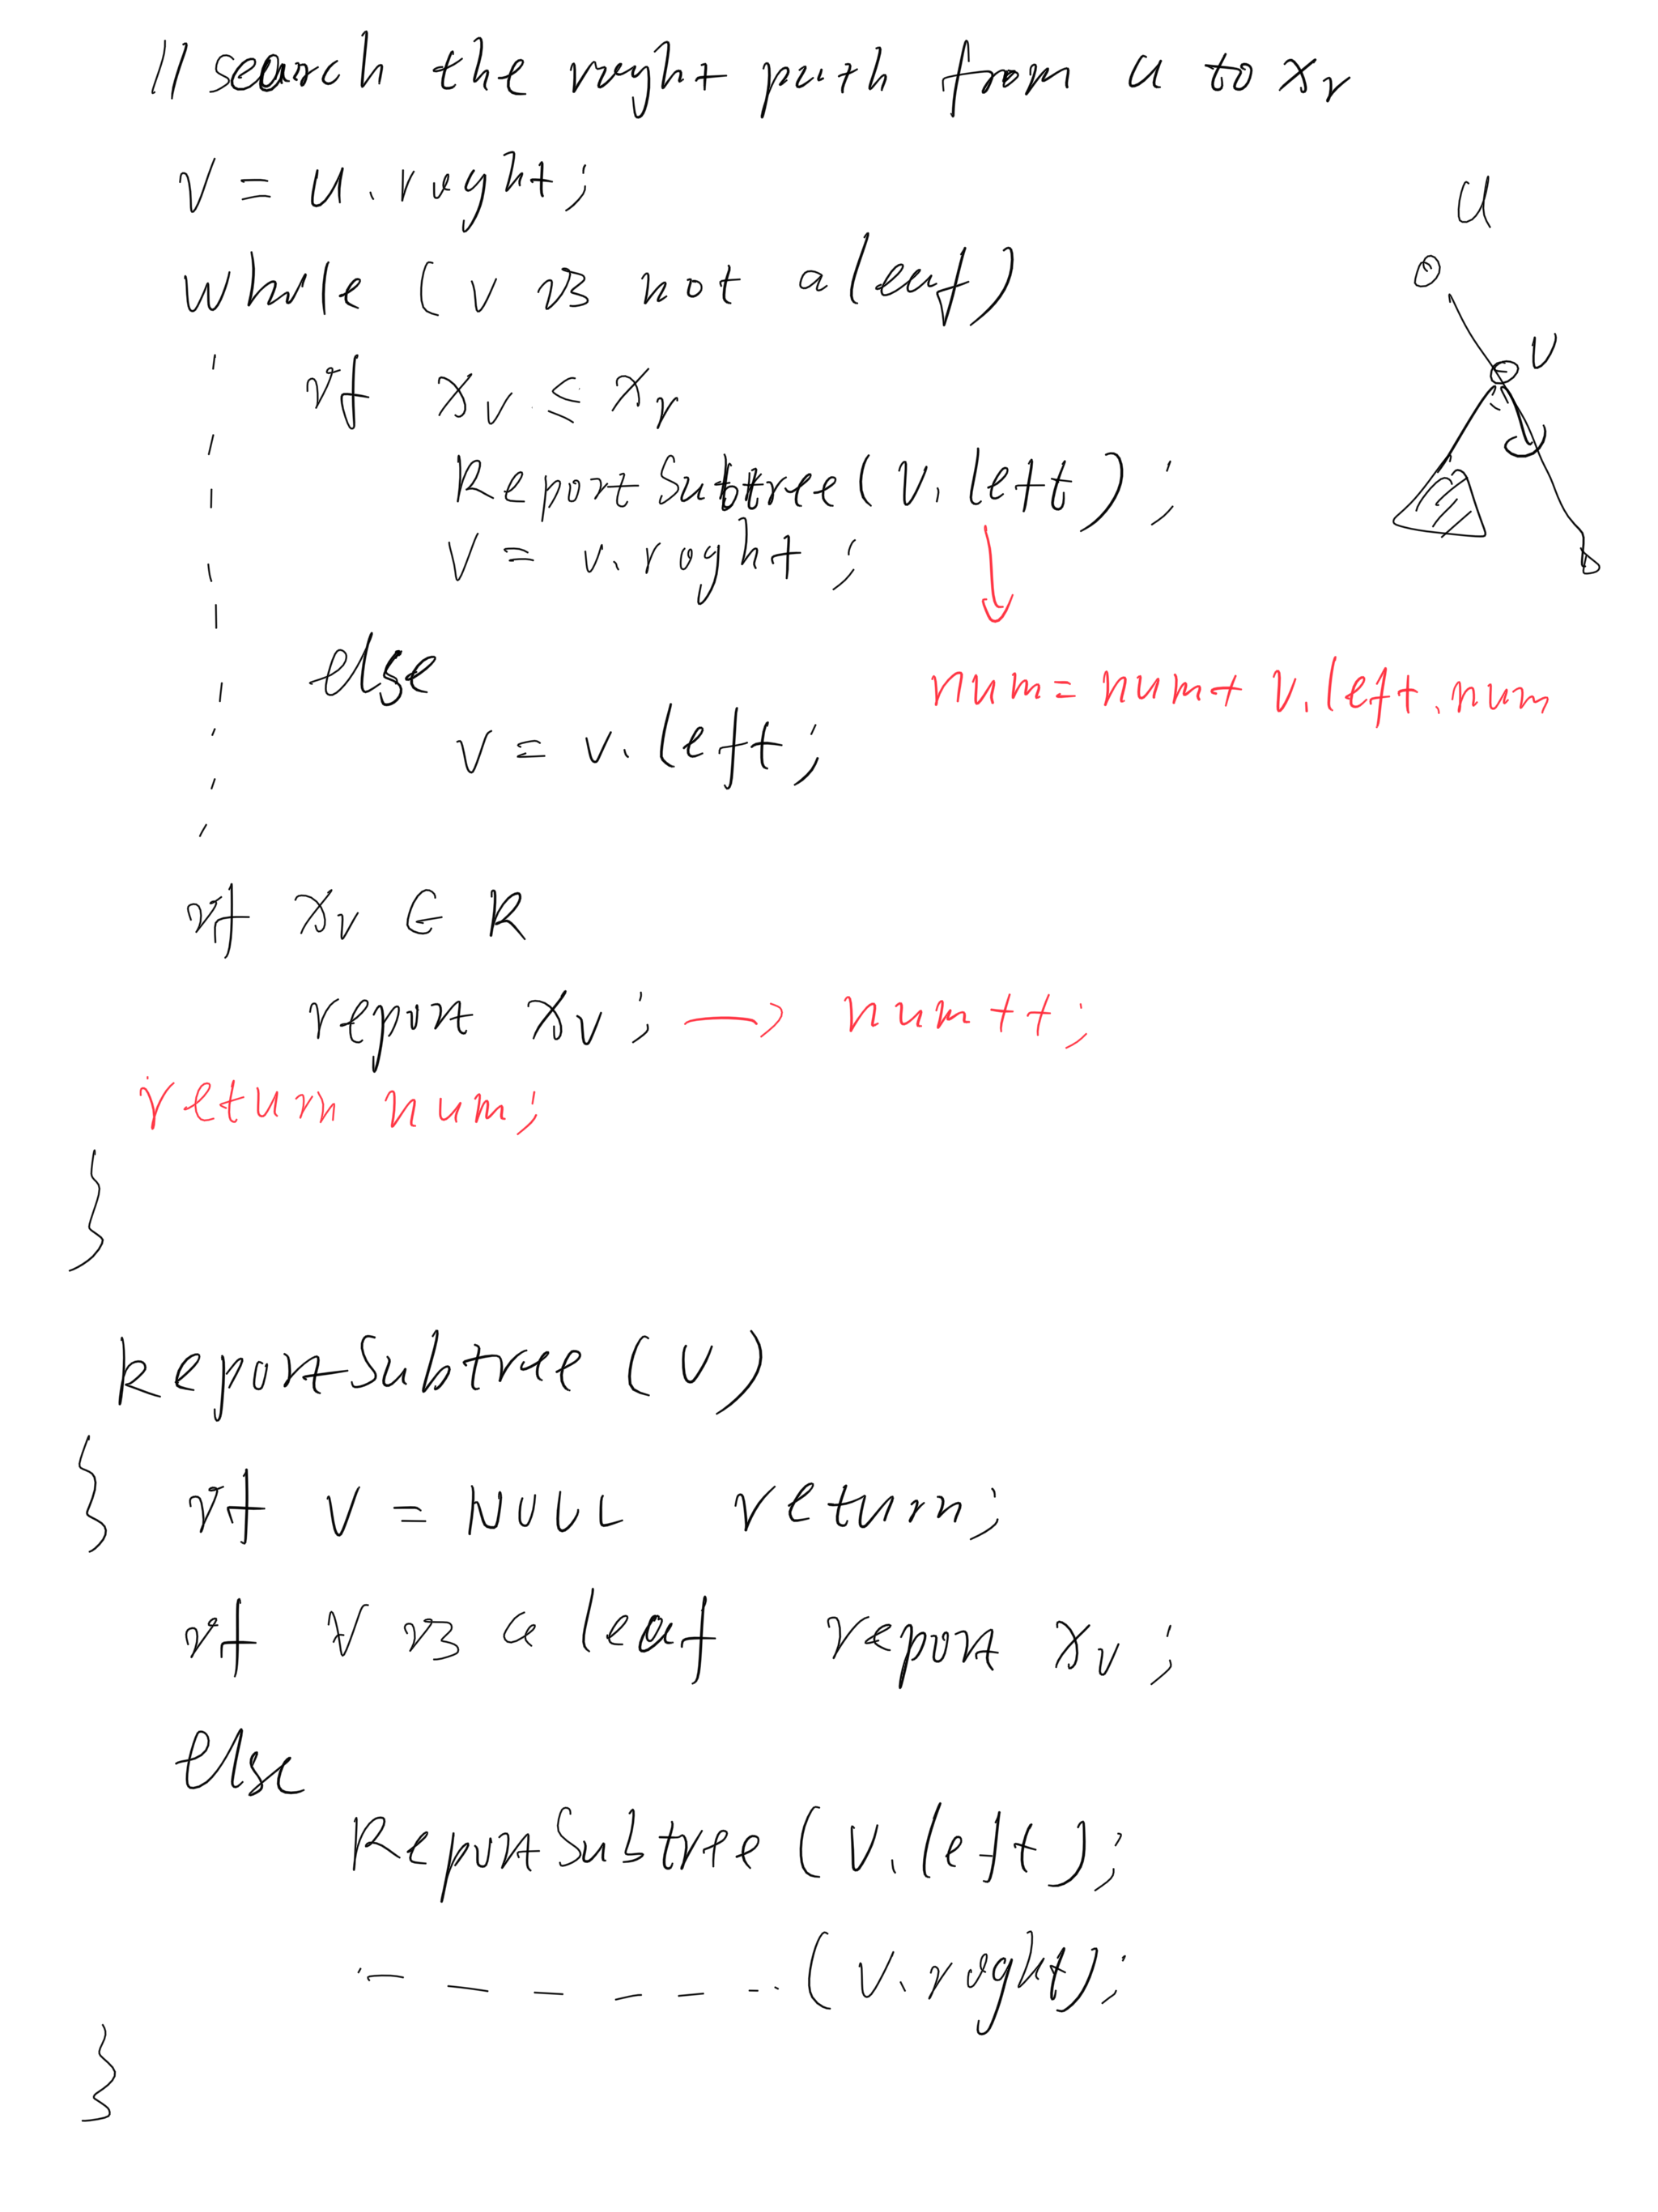 // search the right path from u to x_r
v = u.right;
u
while (v is not a leaf)
v
if x_v ≤ x_r
ReportSubtree(v.left);
v = v.right;
else
num = num + v.left.num
v = v.left;
if x_v ∈ R
report x_v; → num++;
return num;
}
ReportSubtree(v)
{ if v = NULL return;
if v is a leaf report x_v;
else
ReportSubtree(v.left);
- - - - - - (v.right);
}